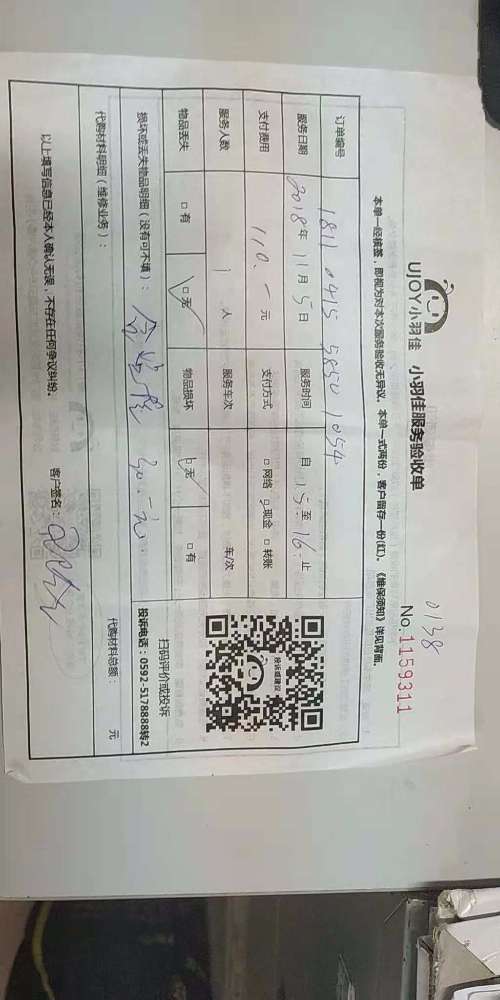 UJOY小羽佳 小羽佳服务验收单
0138
No.1159311
本单一经核签，即视为对本次服务验收无异议。本单一式两份，客户留存一份(红)。《维保须知》详见背面。
订单编号 1811 0415 5850 1054
服务日期 2018年11月5日 服务时间 自15至16止
支付费用 110.-元 支付方式 □网络 □现金 □转账
服务人数 1人 服务车次 车/次
物品丢失 □有 □无 物品损坏 □无 □有
扫码评价或投诉
投诉电话：0592-5178888转2
投诉或建议
损坏或丢失物品明细（没有可不填）： 30.-元
代购材料明细（维修业务）： 代购材料总额： 元
以上填写信息已经本人确认无误，不存在任何争议纠纷。 客户签名：